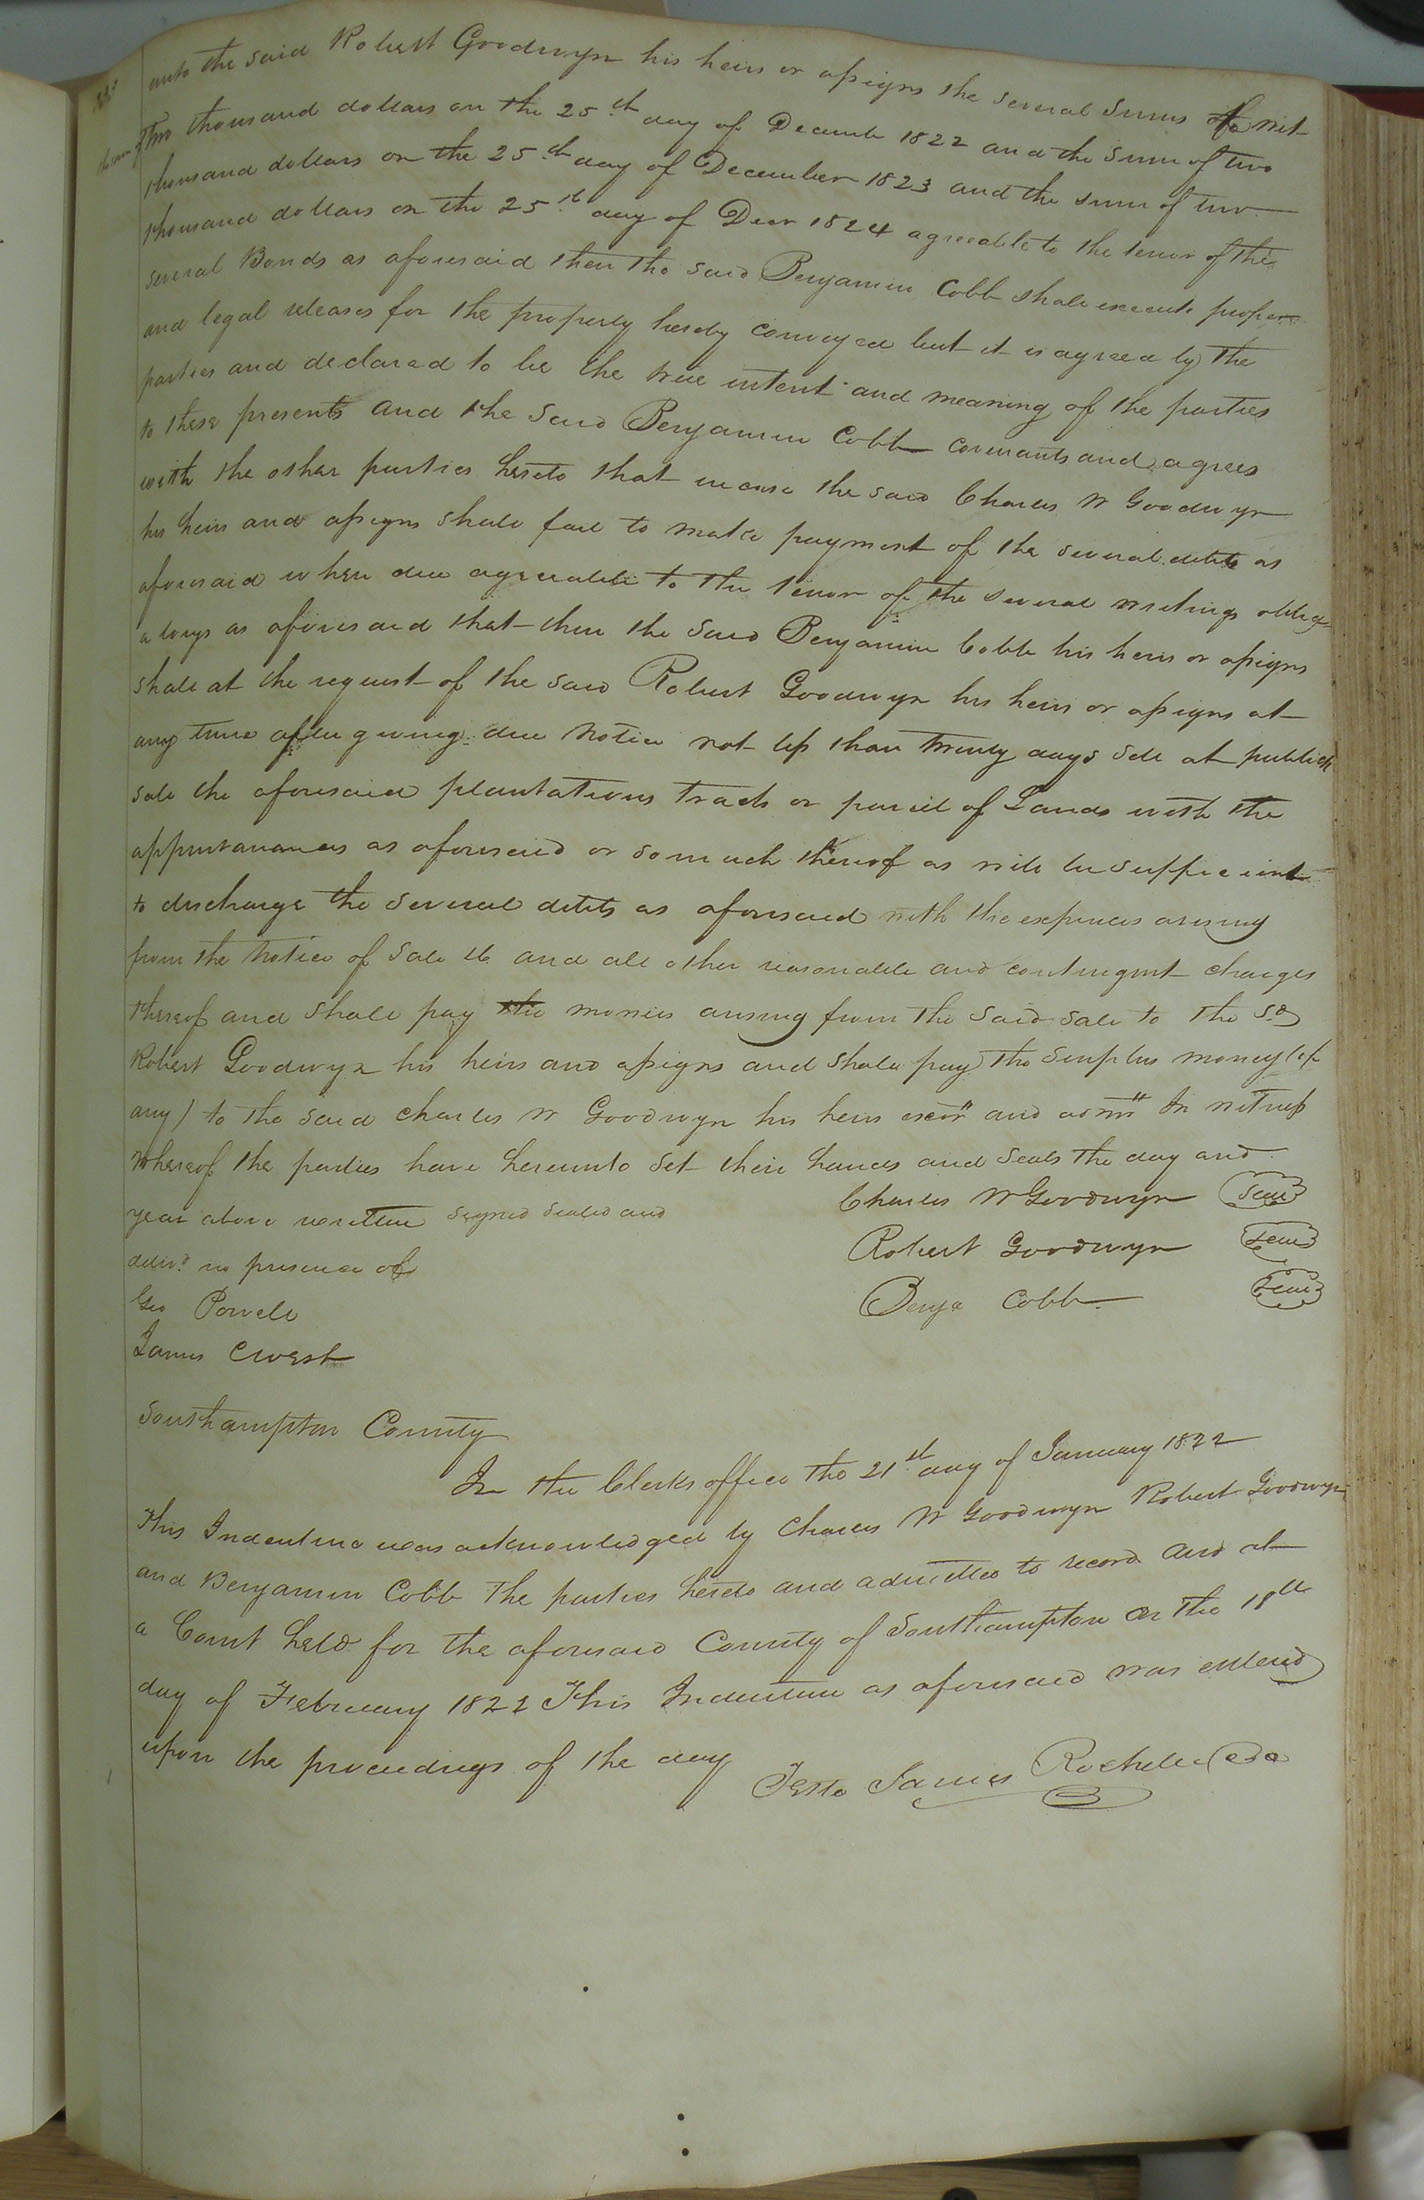 unto the said Robert Goodwyn his heirs or assigns the several sums to wit
the sum of Two thousand dollars on the 25th day of Decembr 1822 and the sum of two
thousand dollars on the 25th day of December 1823 and the sum of two
thousand dollars on the 25th day of Decr 1824 agreeable to the tenor of the
several Bonds as aforesaid then the said Benjamin Cobb shall execute proper
and legal releases for the property hereby conveyed but it is agreed by the
parties and declared to be the true intent and meaning of the parties
to these presents and the said Benjamin Cobb covenants and agrees
with the other parties hereto that in case the said Charles W Goodwyn
his heirs and assigns shall fail to make payment of the several debts as
aforesaid when due agreeable to the tenor of the several writings oblig
atorys as aforesaid that then the said Benjamin Cobb his heirs or assigns
shall at the request of the said Robert Goodwyn his heirs or assigns at
any time after giving due notice not less than twenty days sell at publick
sale the aforesaid plantations tracts or parcel of Lands with the
appurtanances as aforesaid or so much thereof as will be sufficient
to discharge the several debts as aforesaid with the expences arising
from the notice of sale &c and all other reasonable and contingent charges
thereof and shall pay the monies arising from the said sale to the sd
Robert Goodwyn his heirs and assigns and shall pay the surplus money (if
any) to the said Charles W Goodwyn his heirs exors and admrs In witness
whereof the parties have hereunto set their hands and seals the day and
year above written signed sealed and Charles W Goodwyn Seal
delivd in presence of Robert Goodwyn Seal
Geo Powell Benja Cobb Seal
James C West
Southampton County
In the Clerks office the 21st day of January 1822
This Indenture was acknowledged by Charles W Goodwyn Robert Goodwyn
and Benjamin Cobb the parties hereto and admitted to record and at
a Court held for the aforesaid County of Southampton on the 18th
day of February 1822 This Indenture as aforesaid was entered
upon the proceedings of the day
Teste James Rochelle